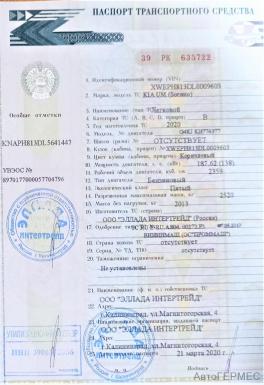 ПАСПОРТ ТРАНСПОРТНОГО СРЕДСТВА
39 РК 635722
Особые отметки
KNAPH813DL5641447
УВЭОС №
1. Идентификационный номер (VIN)
XWEPH813DL0009603
2. Марка, модель ТС KIA UM (Sorento)
3. Наименование (тип ТС) Легковой
4. Категория ТС (А, В, С, D, прицеп) B
5. Год изготовления ТС 2020
6. Модель, № двигателя
7. Шасси (рама) № ОТСУТСТВУЕТ
8. Кузов (кабина, прицеп) № XWEPH813DL0009603
9. Цвет кузова (кабины, прицепа) Коричневый
10. Мощность двигателя, л. с. (кВт) 187.62 (138)
11. Рабочий объем двигателя, куб. см 2359
12. Тип двигателя Бензиновый
13. Экологический класс Пятый
14. Разрешенная максимальная масса, кг
15. Масса без нагрузки, кг 2013
16. Изготовитель ТС (страна)
ООО "ЭЛЛАДА ИНТЕРТРЕЙД" (Россия)
17. Одобрение типа ТС №
18. Страна вывоза ТС отсутствует
19. Серия, № ТД, ТПО отсутствует
20. Таможенные ограничения
Не установлены
21. Наименование (ф. и. о.) собственника ТС
ООО "ЭЛЛАДА ИНТЕРТРЕЙД"
22. Адрес
г.Калининград, ул.Магнитогорская, 4
23. Наименование организации, выдавшей паспорт
ООО "ЭЛЛАДА ИНТЕРТРЕЙД"
24. Адрес
г.Калининград, ул.Магнитогорская, 4
25. Дата выдачи паспорта 21 марта 2020 г.
ЭЛЛАДА
ИНТЕРТРЕЙД
АвтоГЕРМЕС